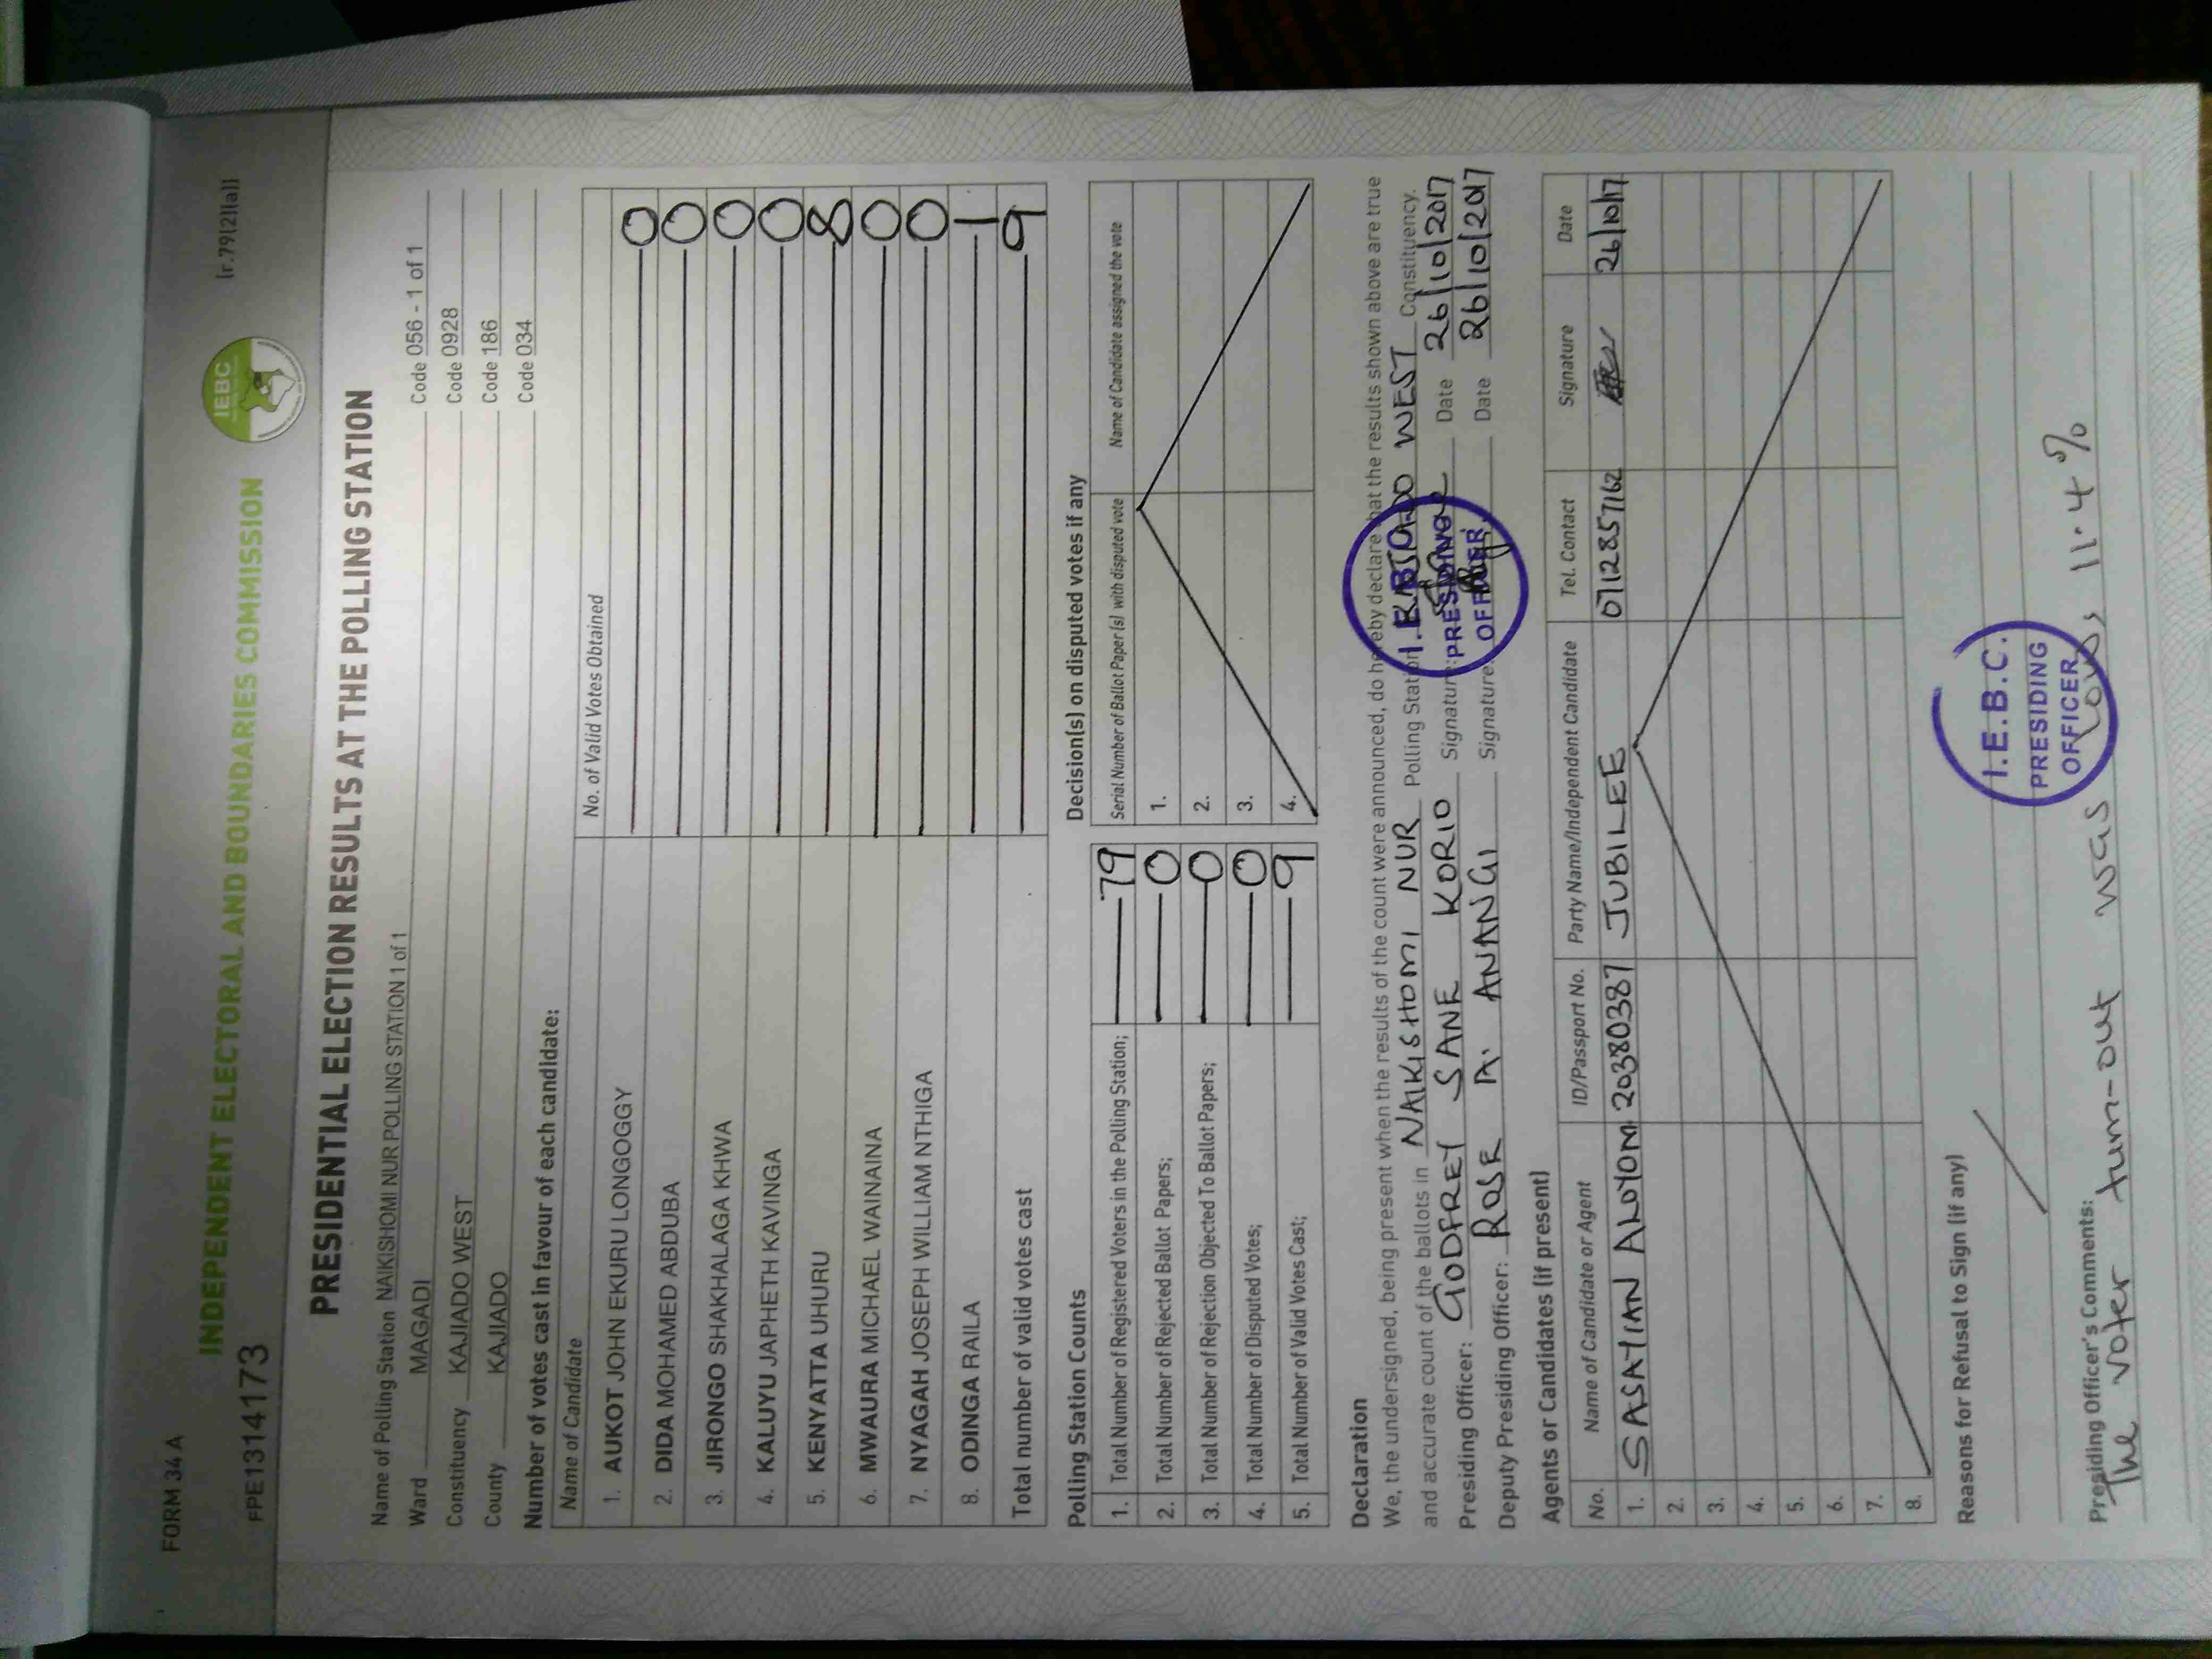 FORM 34 A
(r.79(2)(a))
FPE1314173
IEBC
INDEPENDENT ELECTORAL AND BOUNDARIES COMMISSION
PRESIDENTIAL ELECTION RESULTS AT THE POLLING STATION
Name of Polling Station NAIKISHOMI NUR POLLING STATION 1 of 1 Code 056 - 1 of 1
Ward MAGADI Code 0928
Constituency KAJIADO WEST Code 186
County KAJIADO Code 034
Number of votes cast in favour of each candidate:
Name of Candidate No. of Valid Votes Obtained
1. AUKOT JOHN EKURU LONGOGGY 0
2. DIDA MOHAMED ABDUBA 0
3. JIRONGO SHAKHALAGA KHWA 0
4. KALUYU JAPHETH KAVINGA 0
5. KENYATTA UHURU 8
6. MWAURA MICHAEL WAINAINA 0
7. NYAGAH JOSEPH WILLIAM NTHIGA 0
8. ODINGA RAILA 1
Total number of valid votes cast 9
Polling Station Counts
1. Total Number of Registered Voters in the Polling Station; 79
2. Total Number of Rejected Ballot Papers; 0
3. Total Number of Rejection Objected To Ballot Papers; 0
4. Total Number of Disputed Votes; 0
5. Total Number of Valid Votes Cast; 9
Decision(s) on disputed votes if any
Serial Number of Ballot Paper (s) with disputed vote Name of Candidate assigned the vote
1.
2.
3.
4.
Declaration
We, the undersigned, being present when the results of the count were announced, do hereby declare that the results shown above are true
and accurate count of the ballots in NAIKISHOMI NUR Polling Station KAJIADO WEST Constituency.
Presiding Officer: GODFREY SANE KORIO Signature: Date 26/10/2017
Deputy Presiding Officer: ROSE A. ANANGI Signature: Date 26/10/2017
I.E.B.C.
PRESIDING
OFFICER
Agents or Candidates (if present)
No. Name of Candidate or Agent ID/Passport No. Party Name/Independent Candidate Tel. Contact Signature Date
1. SASATIAN 20380387 JUBILEE 0712857162 26/10/17
2.
3.
4.
5.
6.
7.
8.
Reasons for Refusal to Sign (if any)
I.E.B.C.
PRESIDING
OFFICER
Presiding Officer's Comments:
The voter turn-out was low, 11.4%